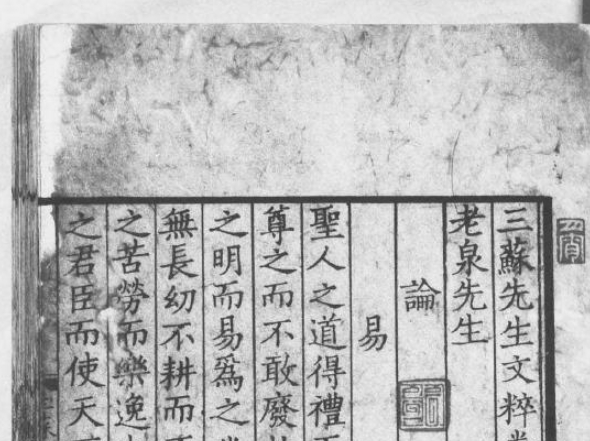 三蘇先生文粹卷
老泉先生
論
易
聖人之道得禮
尊之而不敢廢
之明而易爲之
無長幼不耕而
之苦勞而樂逸
之君臣而使天